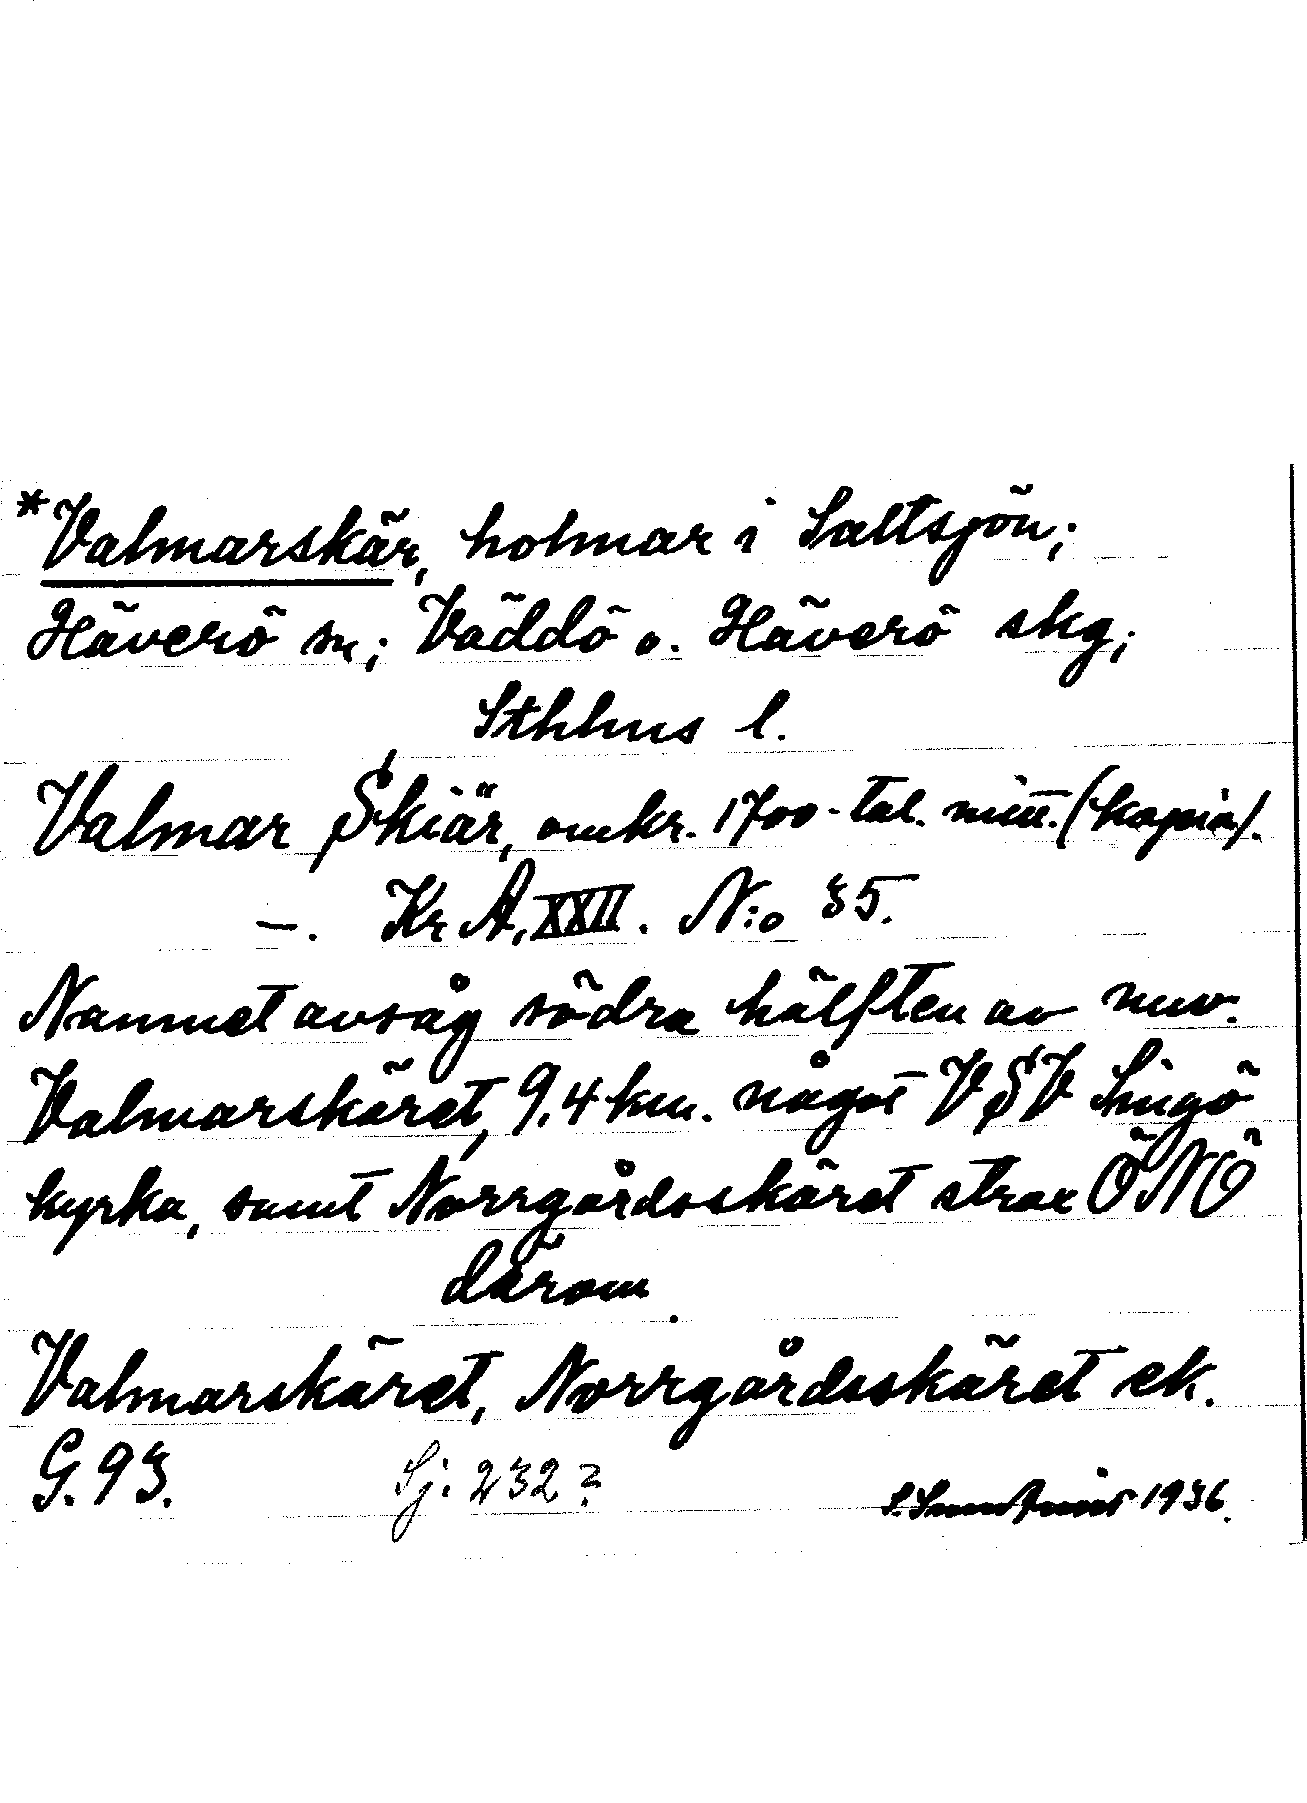 *Valmarskär, holmar i Saltsjön;
Häverö sn; Väddö o. Häverö skg;
Sthlms l.
Valmar Skiär, omkr. 1700-tal. mitt. (kopia).
—. Kr A, XXII. N:o 35.
Namnet avsåg södra hälften av nuv.
Valmarskäret, 9.4 km. något VSV Singö
kyrka, samt Norrgårdsskäret strax ÖNÖ
därom.
Valmarskäret, Norrgårdsskäret ek.
G. 93. Sj. 232?
S. 1936.